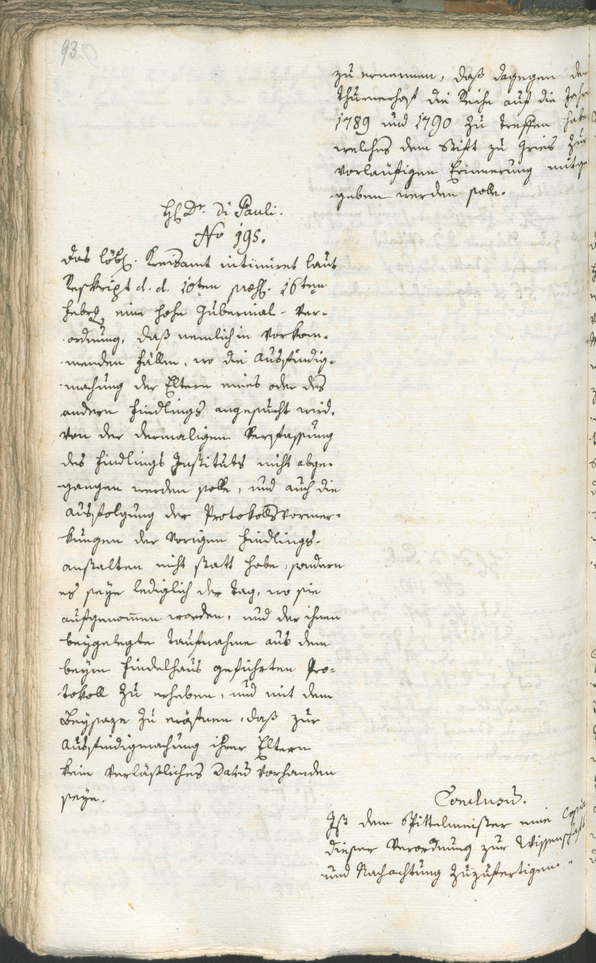 93.
zu ernennen, daß dagegen den
Thurnerhof die Reihe auf die Jahre
1789 und 1790 zu treffen habe
welches dem Stift zu Gries zur
vorläufigen Erinnerung mitge
geben werden solle.
H. Dr. Di Pauli.
No 195.
Das löbl. Kreisamt intimiret laut
Reskript d. d. 10ten präs. 16ten
Febr. eine hohe Gubernial-Ver-
ordnung, daß nemlich in vorkom-
menden Fällen, wo die Ausfindig-
machung der Eltern eines oder des
andern Findlings angesucht wird,
von der dermaligen Verfassung
des Findlings Instituts nicht abge-
gangen werden solle, und auch die
Ausfolgung der Protokollsvormer-
kungen der vorigen Findlings-
anstalten nicht statt habe, sondern
es seye lediglich der Tag, wo sie
aufgenommen worden, und der ihnen
beygelegte Taufname aus dem
beym Findelhaus geführten Pro-
tokoll zu erheben, und mit dem
Beysaze zu eröfnen, daß zur
Ausfindigmachung ihrer Eltern
kein verläßliches Datum vorhanden
seye.
Conclusum.
Ist dem Spittelmeister eine Copia
dieser Verordnung zur Wissenschaft
und Nachachtung zuzufertigen.